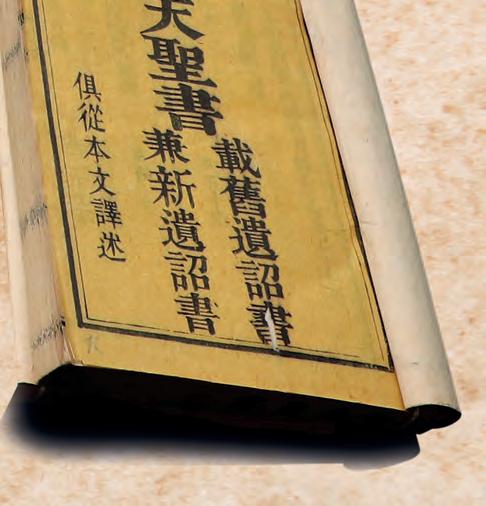 天聖書
載舊遺詔書
兼新遺詔書
俱從本文譯述